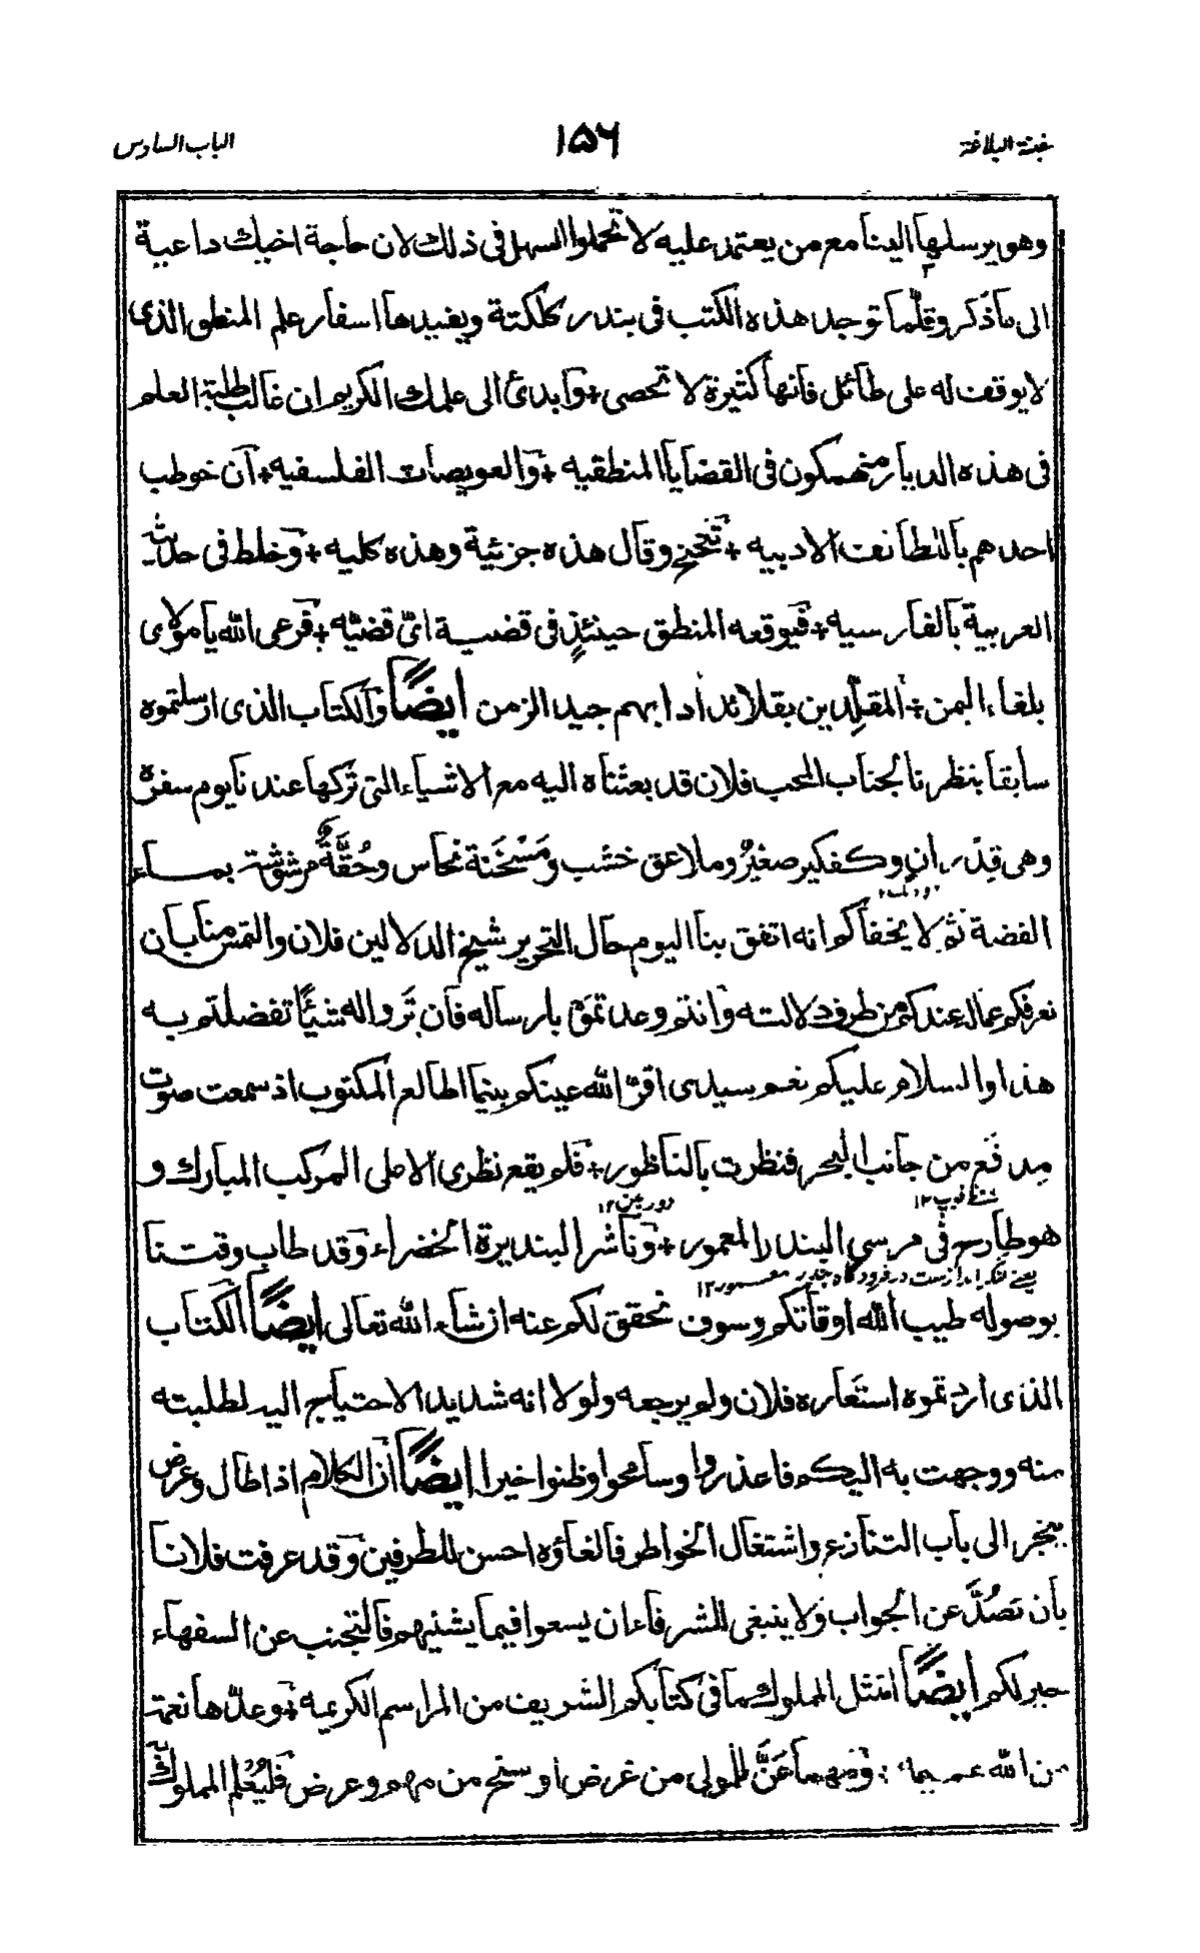 الباب السادس ١٥٦ البلاغة
وهو يرسلها الينا مع من يعتمد عليه لا تحملوا السهل فى ذلك لان حاجة اخيك داعية
الى ما ذكر وقلّما توجد هذه الكتب فى بندر كلكتة ويفنيدها اسفار علم المنطق الذى
لا يوقف له على طائل فانها كثيرة لا تحصى + وابدئ الى علمك الكريم ان غالب طلبة العلم
فى هذه الديار منهمكون فى القضايا المنطقيه + والعويصات الفلسفيه + ان خوطب
احدهم باللطائف الادبيه + تنحنح وقال هذه جزئية وهذه كليه + وخلط فى حديث
العربية بالفارسيه + فيوقعه المنطق حينئذٍ فى قضية اىّ قضيّه + فرعى الله يا مولاى
بلغاء اليمن + المقلّدين بقلائد ادابهم جيد الزمن ايضًا والكتاب الذى ارسلتموه
سابقا بنظرنا لجناب المحب فلان قد بعثناه اليه مع الاشياء التى تركها عندنا يوم سفرة
وهى قِدْران وكفكير صغيرٌ وملاعق خشب ومَسْخَنة نحاس وحُقَّةٌ مرشوشة بماء
الفضة ثم لا يخفاكم انه اتفق بنا اليوم حال التحرير شيخ الدلالين فلان والتمس منا بان
نعرفكم عما له عندكم من طرف دلالته وانتم وعدتموه بارساله فان تَروا له شيئًا تفضلتم به
هذا والسلام عليكم نعم سيدى اقرّ الله عينكم بينما اطالع المكتوب اذ سمعت صوت
مِدفَع من جانب البحر فنظرت بالناظور + فلم يقع نظرى الا على المركب المبارك و
دوربين ١٢
هو طارح فى مرسى البندر المعمور + وناشر البنديرة الخضراء وقد طاب وقتنا
يعنے لنگر انداز ست در فرودگاه بندر معمور ١٢
بوصوله طيب الله اوقاتكم وسوف نحقق لكم عنه ان شاء الله تعالى ايضًا الكتاب
الذى اردتموه استعاره فلان ولم يرجعه ولولا انه شديد الاحتياج اليه لطلبته
منه ووجهت به اليكم فاعذروا وسامحوا وظنوا خيرا ايضًا ان الكلام اذا طال وعرض
ينجر الى باب التنازع واشتغال الخواطر فالغاؤه احسن للطرفين وقد عرفت فلانا
بان تصُدَّ عن الجواب ولا ينبغى للشرفاء ان يسعوا فيما يشينهم فالتجنب عن السفهاء
خير لكم ايضًا امتثل المملوك ما فى كتابكم الشريف من المراسم الكريمه + وعدّها نعمة
من الله عميمه + ومهما عَنَّ للمولى من غرض او سنح من مهم وعرض فليُعْلم المملوك